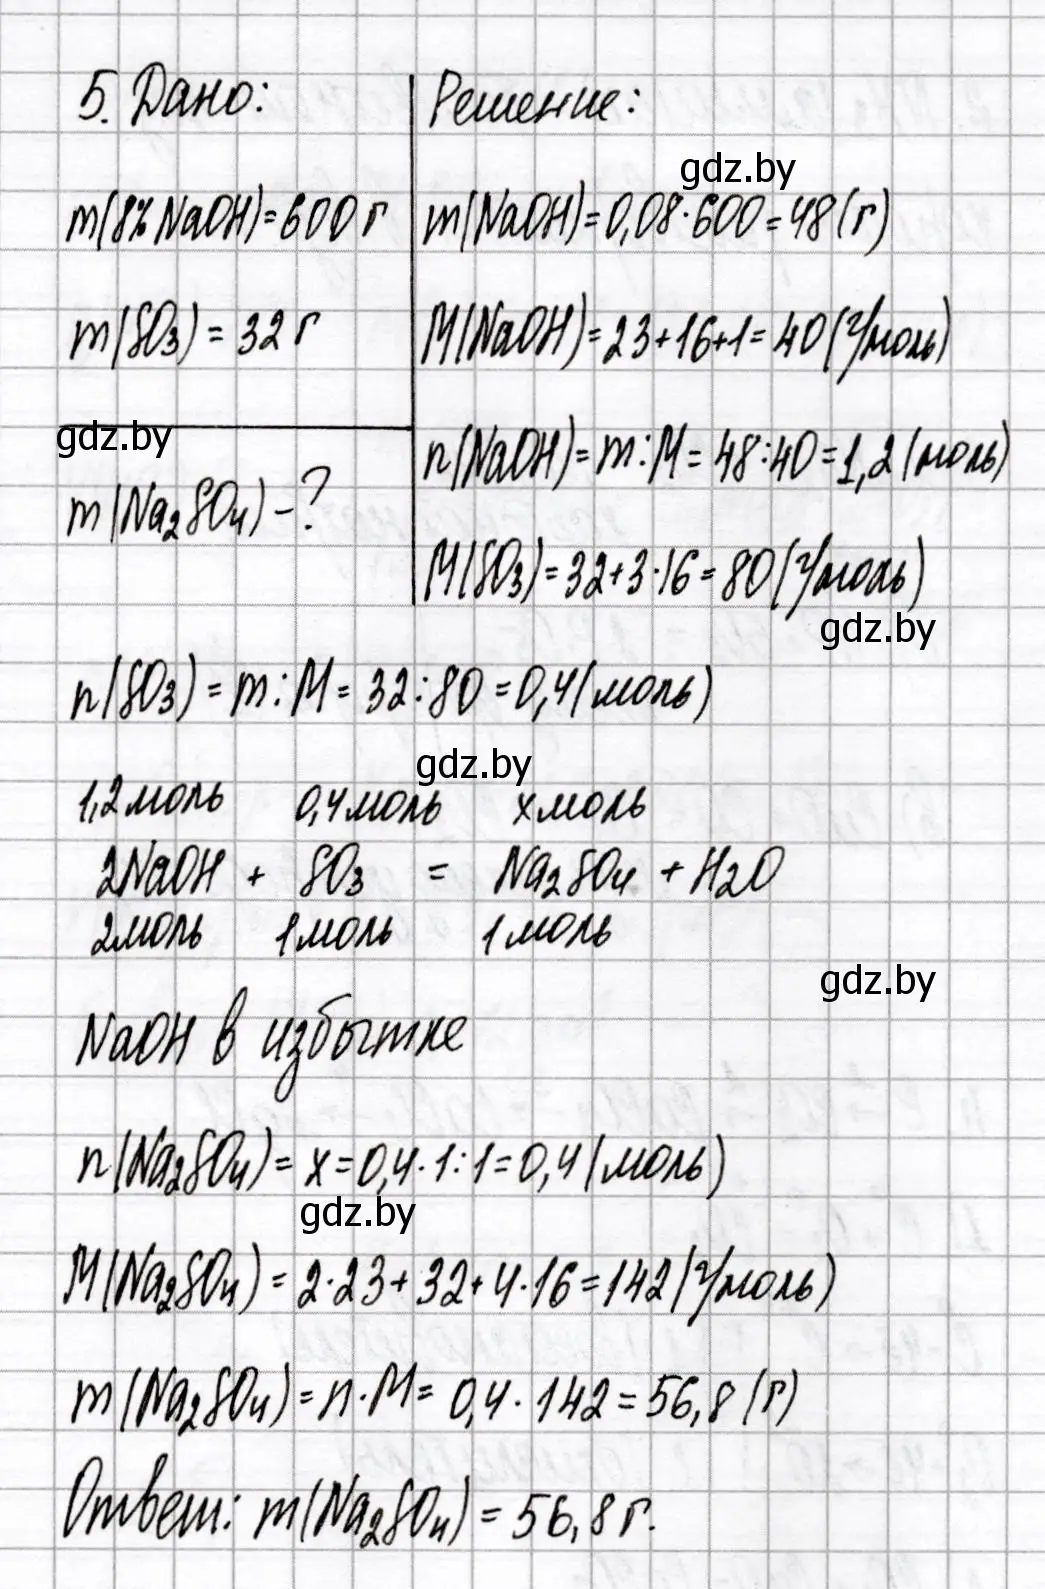 5. Дано:
Решение:
gdz.by
m(8% NaOH)=600 г
m(NaOH)=0,08·600=48(г)
m(SO3)=32 г
M(NaOH)=23+16+1=40(г/моль)
gdz.by
n(NaOH)=m:M=48:40=1,2(моль)
m(Na2SO4)-?
M(SO3)=32+3·16=80(г/моль)
gdz.by
n(SO3)=m:M=32:80=0,4(моль)
gdz.by
1,2моль 0,4моль xмоль
2NaOH + SO3 = Na2SO4 + H2O
2моль 1моль 1моль
gdz.by
NaOH в избытке
n(Na2SO4)=x=0,4·1:1=0,4(моль)
gdz.by
M(Na2SO4)=2·23+32+4·16=142(г/моль)
m(Na2SO4)=n·M=0,4·142=56,8(г)
Ответ: m(Na2SO4)=56,8 г.